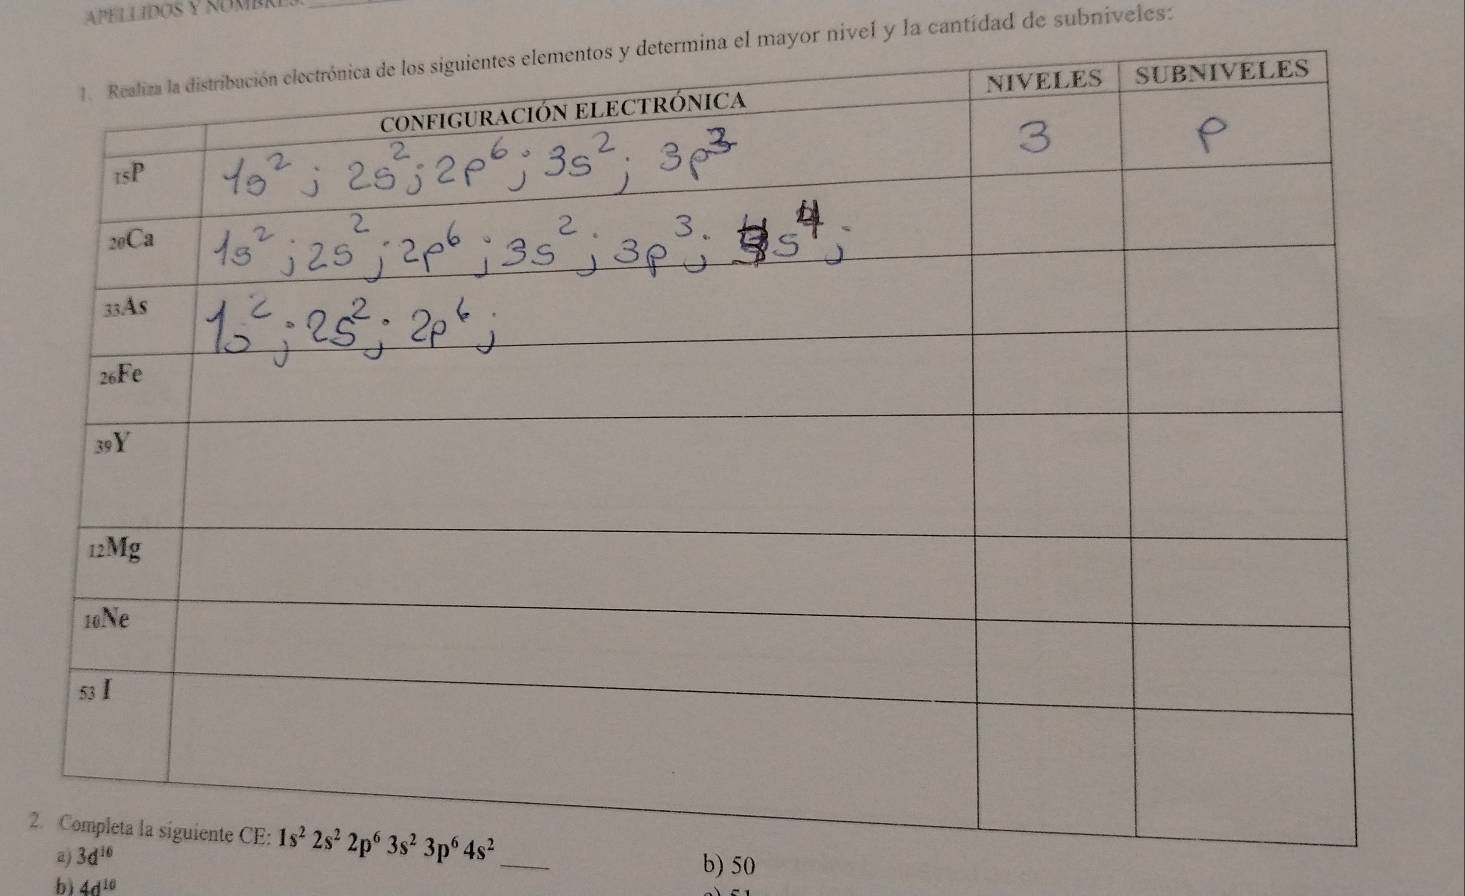 APELLIDOS Y NOMBRES:
1. Realiza la distribución electrónica de los siguientes elementos y determina el mayor nivel y la cantidad de subniveles:
CONFIGURACIÓN ELECTRÓNICA NIVELES SUBNIVELES
₁₅P 1s²; 2s²; 2p⁶; 3s²; 3p³ 3 p
₂₀Ca 1s²; 2s²; 2p⁶; 3s²; 3p³; 4s⁴;
₃₃As 1s²; 2s²; 2p⁶;
₂₆Fe
₃₉Y
₁₂Mg
₁₀Ne
₅₃I
2. Completa la siguiente CE: 1s² 2s² 2p⁶ 3s² 3p⁶ 4s² ____
a) 3d¹⁰
b) 50
b) 4d¹⁰